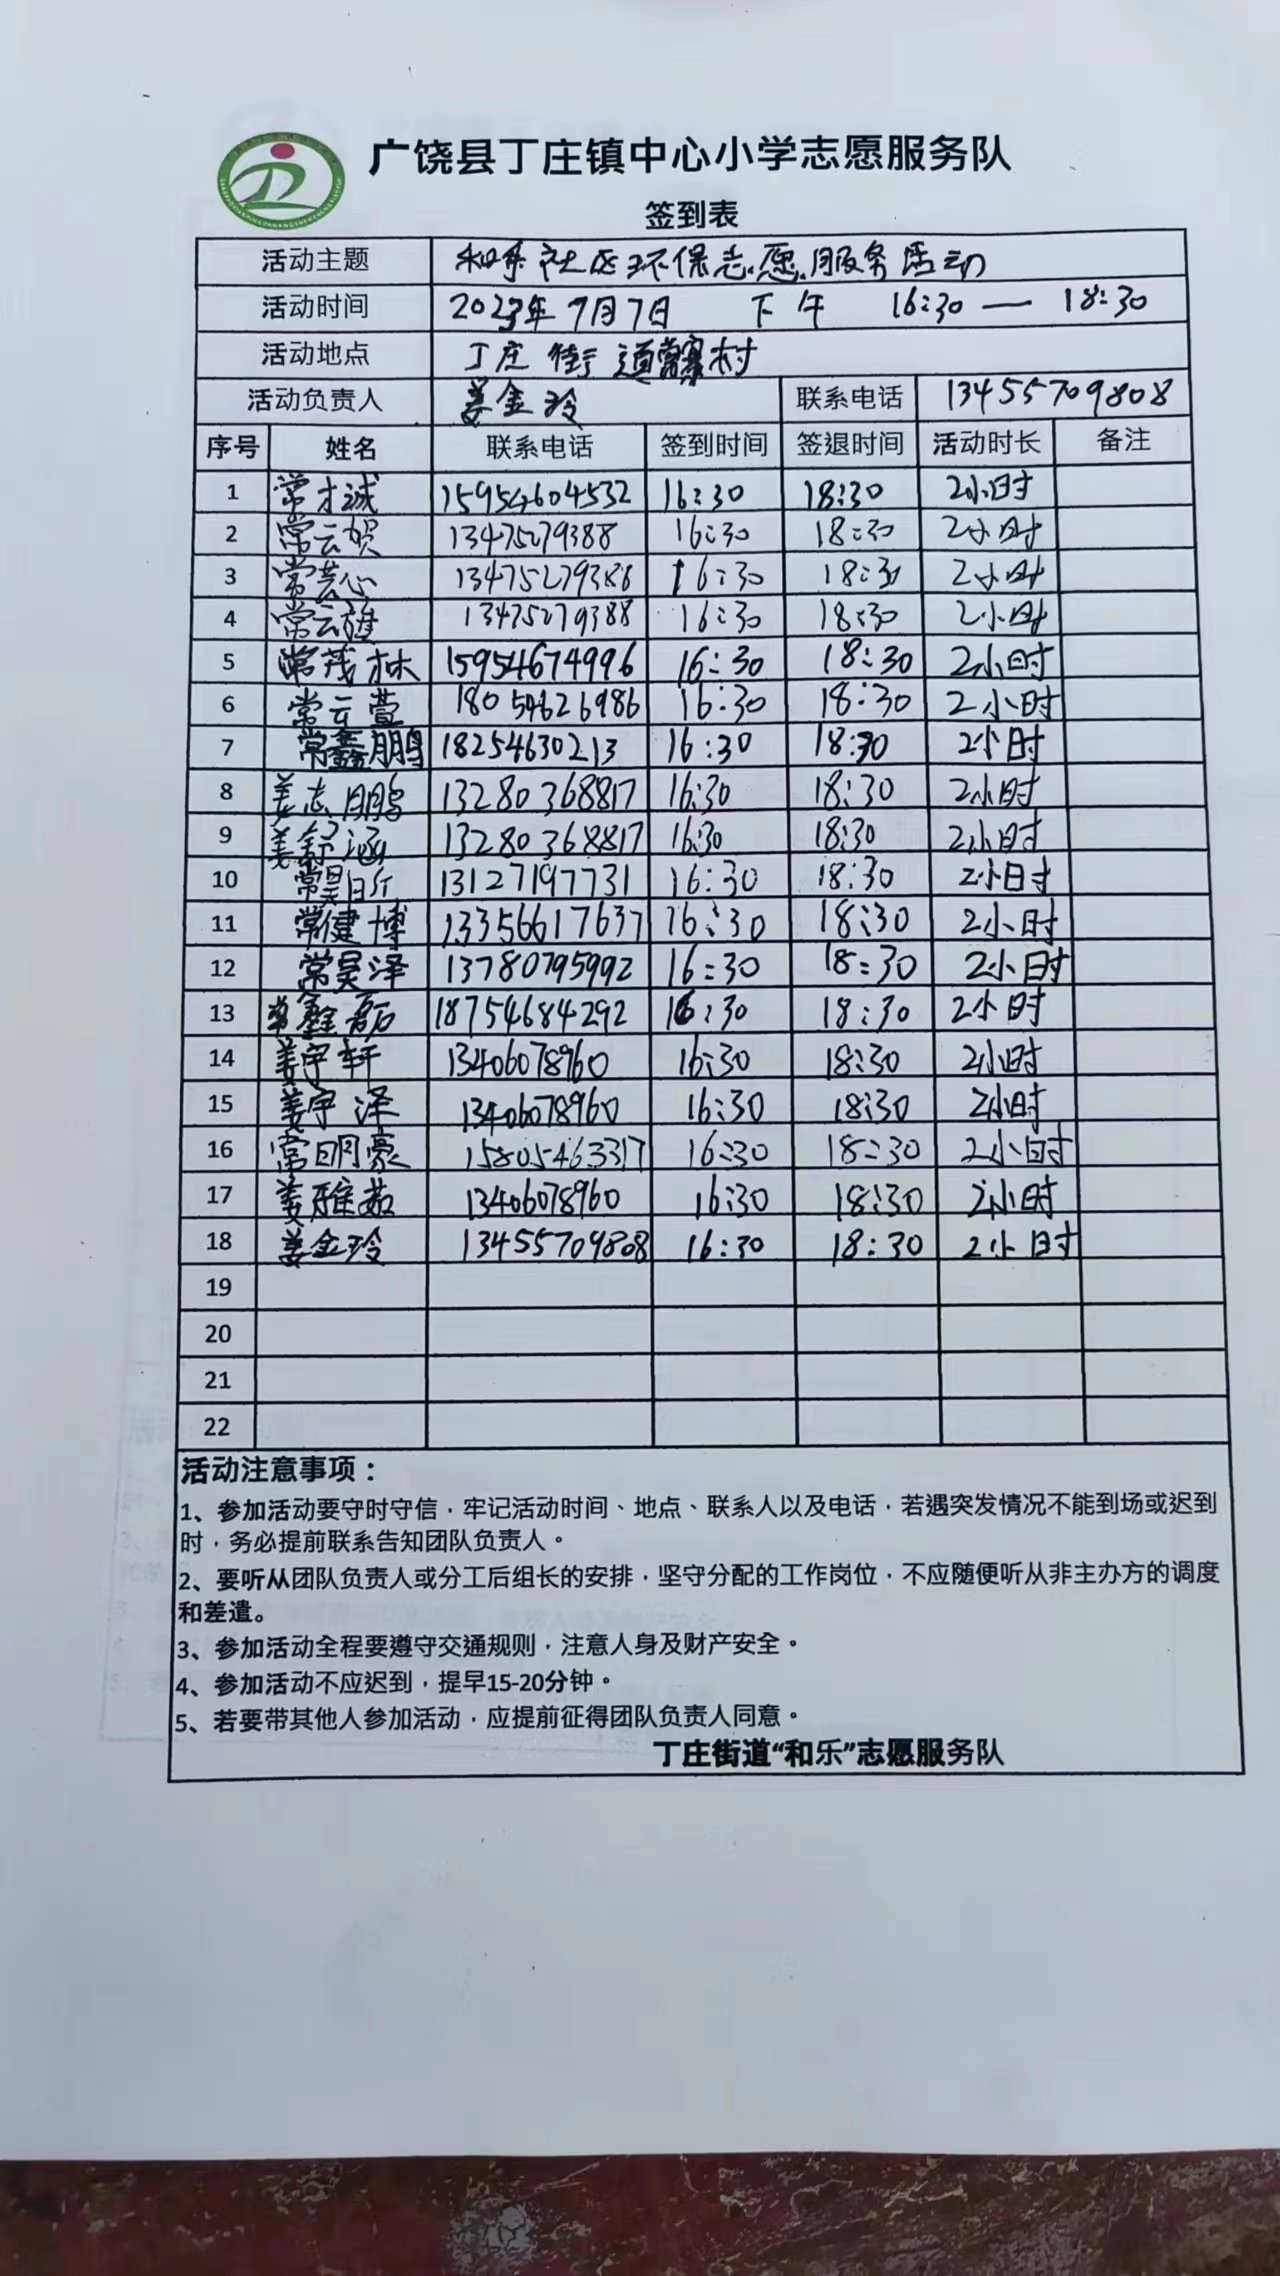 广饶县丁庄镇中心小学志愿服务队
签到表
活动主题 和乐社区环保志愿服务活动
活动时间 2023年7月7日 下午 16:30 — 18:30
活动地点 丁庄街道常寨村
活动负责人 姜金玲 联系电话 13455709808
序号 姓名 联系电话 签到时间 签退时间 活动时长 备注
1 常才诚 15954604532 16:30 18:30 2小时
2 常云贺 13475279388 16:30 18:30 2小时
3 常芸心 13475279388 16:30 18:30 2小时
4 常云雅 13475279388 16:30 18:30 2小时
5 常茂林 15954674996 16:30 18:30 2小时
6 常云萱 18054626986 16:30 18:30 2小时
7 常鑫鹏 18254630213 16:30 18:30 2小时
8 姜志鹏 13280368817 16:30 18:30 2小时
9 姜舒涵 13280368817 16:30 18:30 2小时
10 常昊昕 13127197731 16:30 18:30 2小时
11 常健博 13356617637 16:30 18:30 2小时
12 常昊泽 13780795992 16:30 18:30 2小时
13 常鑫磊 18754684292 16:30 18:30 2小时
14 姜宇轩 13406078960 16:30 18:30 2小时
15 姜宇泽 13406078960 16:30 18:30 2小时
16 常明豪 15805463317 16:30 18:30 2小时
17 姜雅茹 13406078960 16:30 18:30 2小时
18 姜金玲 13455709808 16:30 18:30 2小时
19
20
21
22
活动注意事项：
1、参加活动要守时守信，牢记活动时间、地点、联系人以及电话，若遇突发情况不能到场或迟到
时，务必提前联系告知团队负责人。
2、要听从团队负责人或分工后组长的安排，坚守分配的工作岗位，不应随便听从非主办方的调度
和差遣。
3、参加活动全程要遵守交通规则，注意人身及财产安全。
4、参加活动不应迟到，提早15-20分钟。
5、若要带其他人参加活动，应提前征得团队负责人同意。
丁庄街道“和乐”志愿服务队